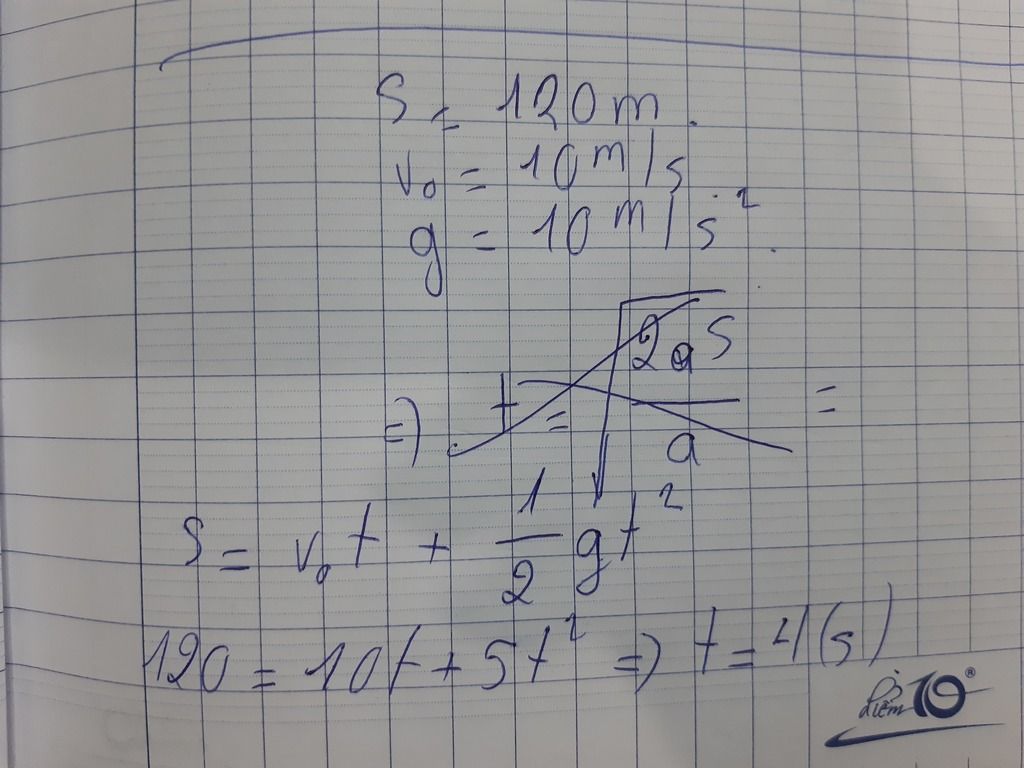 S = 120m.
v₀ = 10 m/s
g = 10 m/s².
=) t = √(2aS / a) =
S = v₀t + 1/2 gt²
120 = 10t + 5t² =) t = 4(s)
Điểm 10®